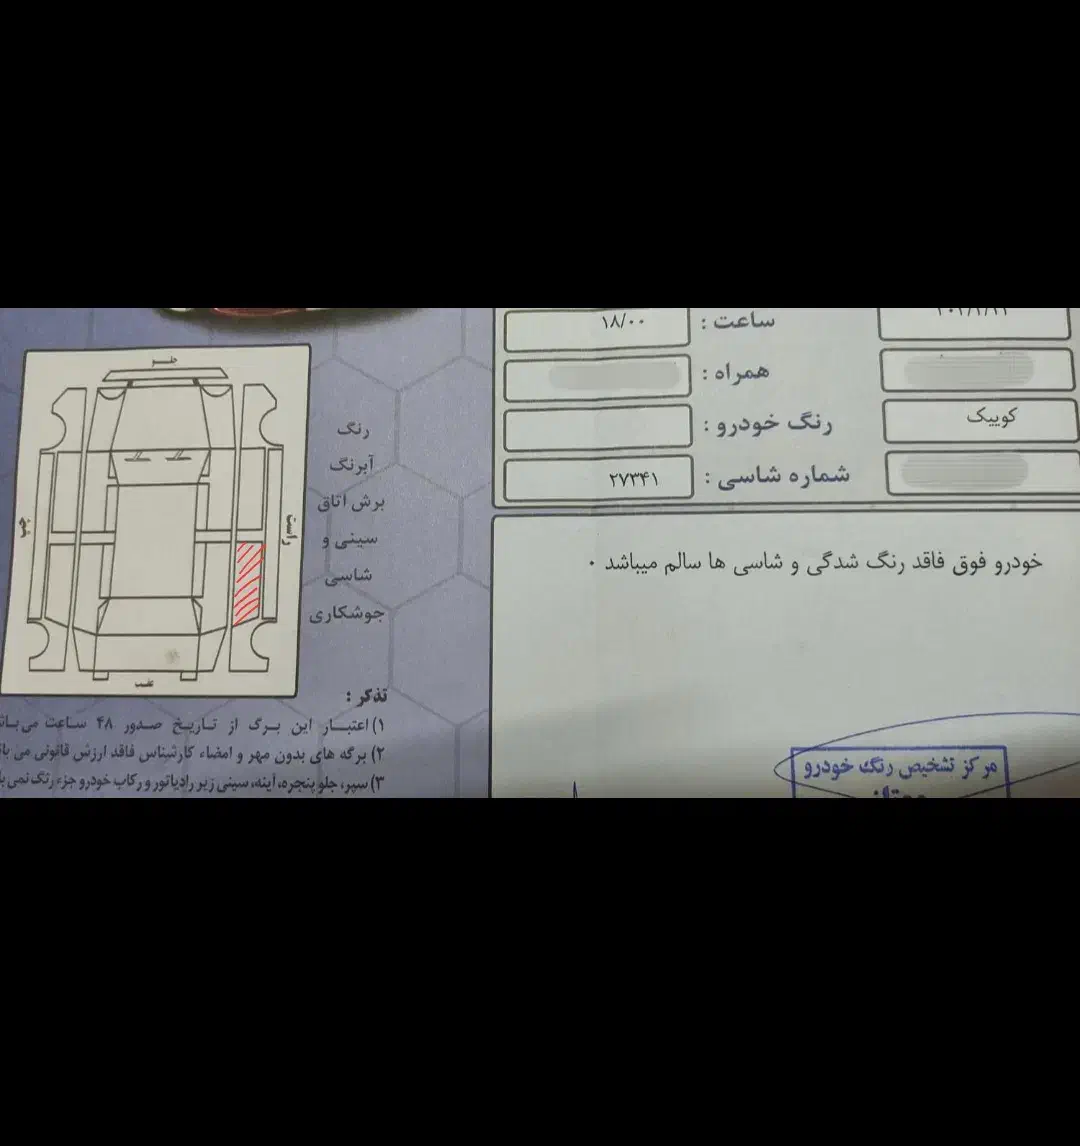 ساعت : ۱۸/۰۰
همراه :
کوییک
رنگ خودرو :
شماره شاسی : ۲۷۳۴۱
خودرو فوق فاقد رنگ شدگی و شاسی ها سالم میباشد ۰
مرکز تشخیص رنگ خودرو
جلو
راست
عقب
رنگ
آبرنگ
برش اتاق
سینی و
شاسی
جوشکاری
تذکر :
۱) اعتبار این برگ از تاریخ صدور ۴۸ ساعت می
۲) برگه های بدون مهر و امضاء کارشناس فاقد ارزش قانونی می
۳) سپر، جلو پنجره، آینه، سینی زیر رادیاتور و رکاب خودرو جزء رنگ نمی